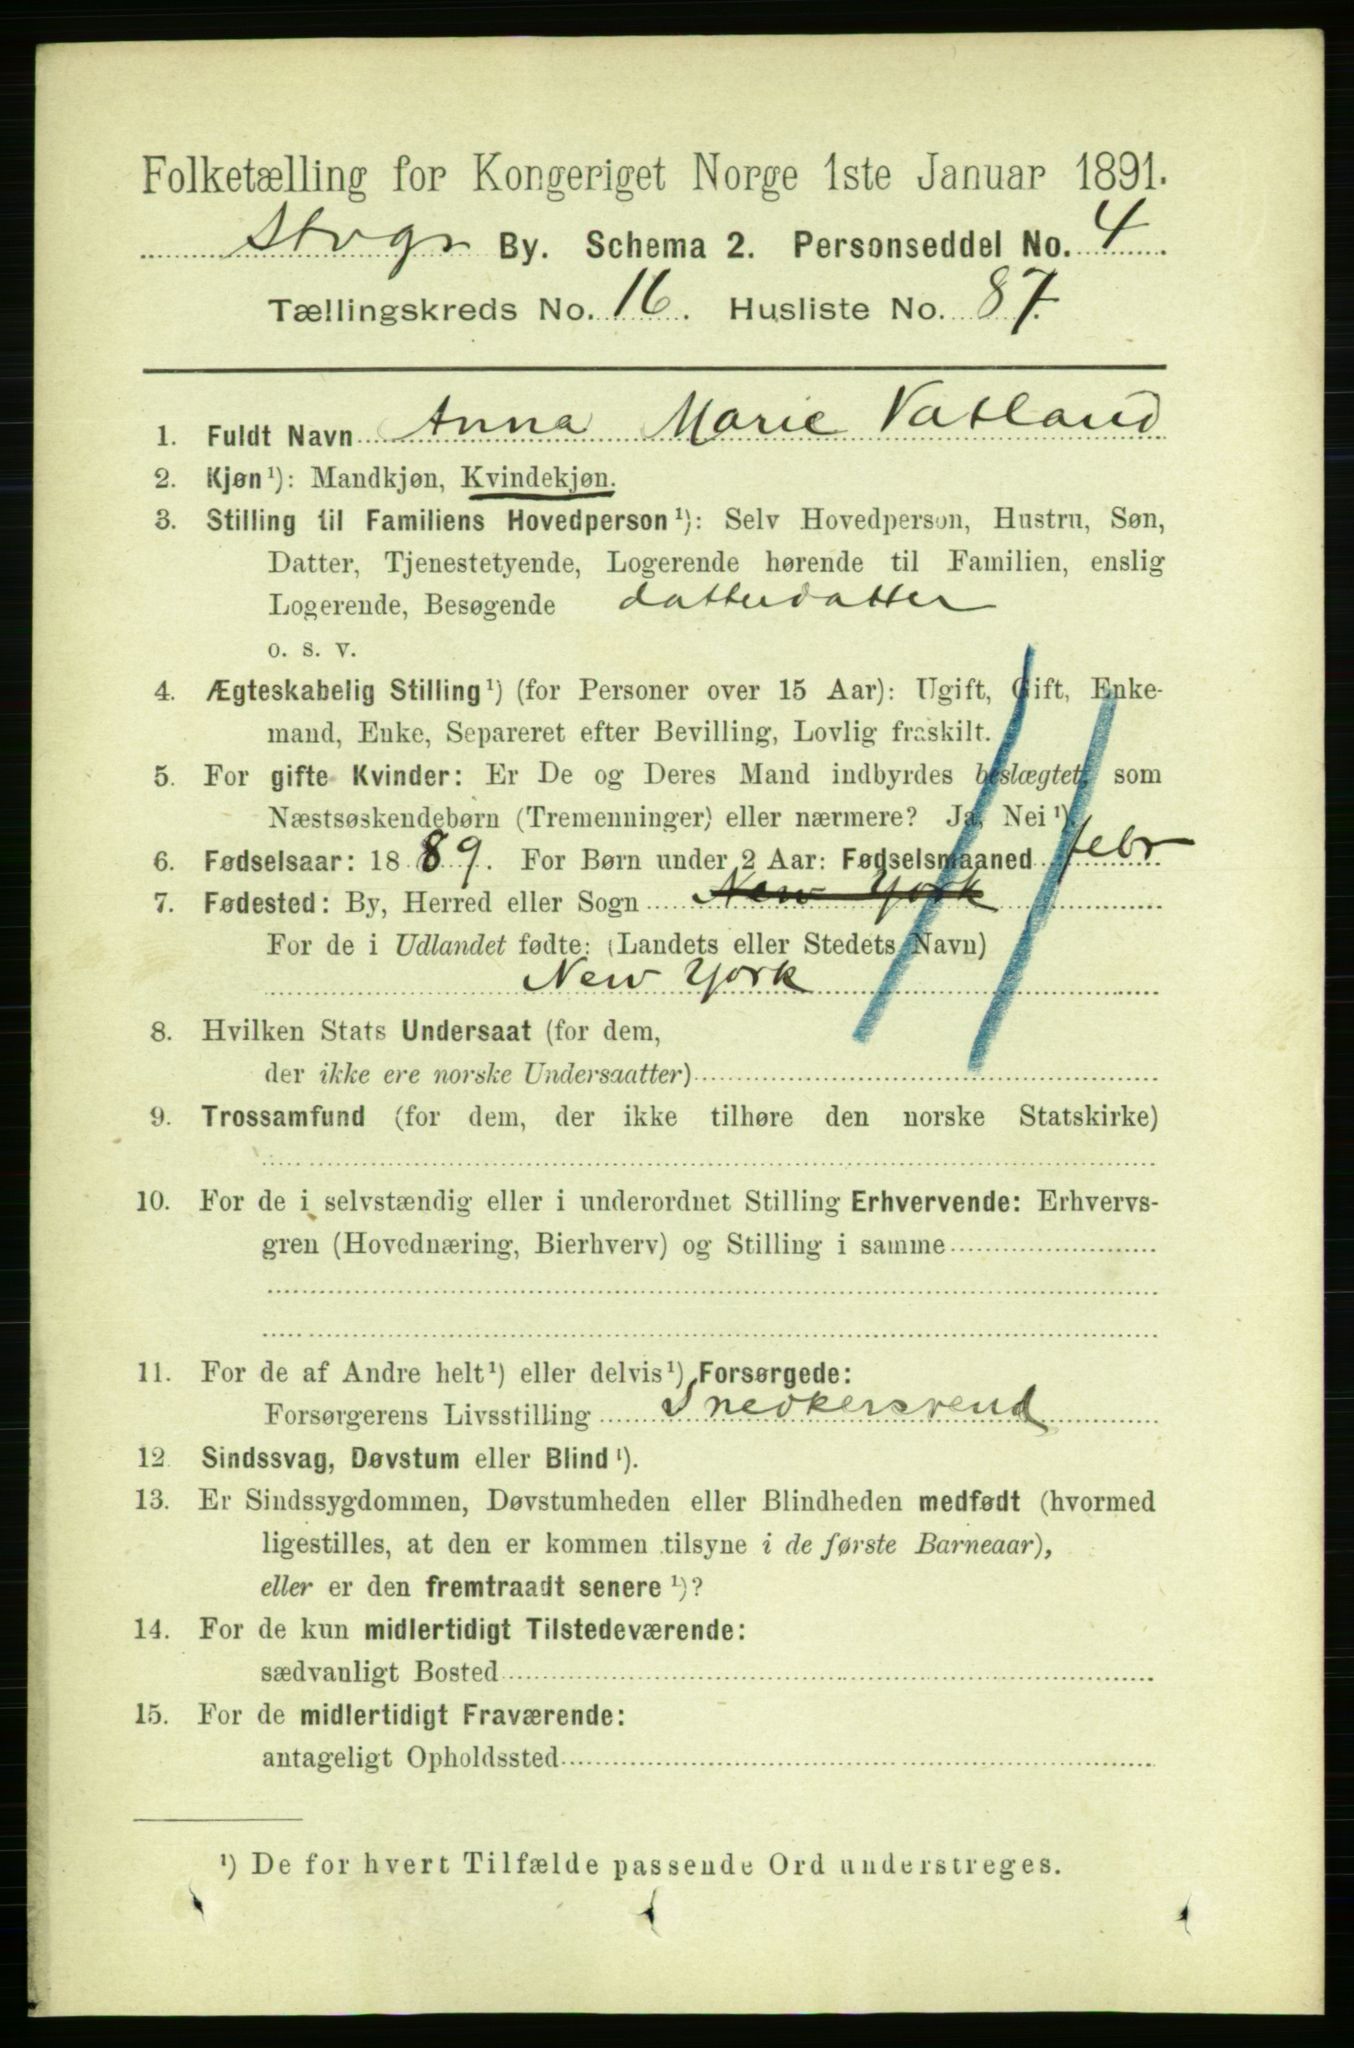 Folketælling for Kongeriget Norge 1ste Januar 1891.
Stvgr By. Schema 2. Personseddel No. 4
Tællingskreds No. 16. Husliste No. 87.
1. Fuldt Navn Anna Marie Vatland
2. Kjøn¹): Mandkjøn, Kvindekjøn.
3. Stilling til Familiens Hovedperson¹): Selv Hovedperson, Hustru, Søn,
Datter, Tjenestetyende, Logerende hørende til Familien, enslig
Logerende, Besøgende datterdatter
o. s. v.
4. Ægteskabelig Stilling¹) (for Personer over 15 Aar): Ugift, Gift, Enke-
mand, Enke, Separeret efter Bevilling, Lovlig fraskilt.
5. For gifte Kvinder: Er De og Deres Mand indbyrdes beslægtet, som
Næstsøskendebørn (Tremenninger) eller nærmere? Ja, Nei¹).
6. Fødselsaar: 1889. For Børn under 2 Aar: Fødselsmaaned febr
7. Fødested: By, Herred eller Sogn New York
For de i Udlandet fødte: (Landets eller Stedets Navn)
New York
8. Hvilken Stats Undersaat (for dem,
der ikke ere norske Undersaatter)
9. Trossamfund (for dem, der ikke tilhøre den norske Statskirke)
10. For de i selvstændig eller i underordnet Stilling Erhvervende: Erhvervs-
gren (Hovednæring, Bierhverv) og Stilling i samme
11. For de af Andre helt¹) eller delvis¹) Forsørgede:
Forsørgerens Livsstilling Snedkersvend
12. Sindssvag, Døvstum eller Blind¹).
13. Er Sindssygdommen, Døvstumheden eller Blindheden medfødt (hvormed
ligestilles, at den er kommen tilsyne i de første Barneaar),
eller er den fremtraadt senere¹)?
14. For de kun midlertidigt Tilstedeværende:
sædvanligt Bosted
15. For de midlertidigt Fraværende:
antageligt Opholdssted
¹) De for hvert Tilfælde passende Ord understreges.